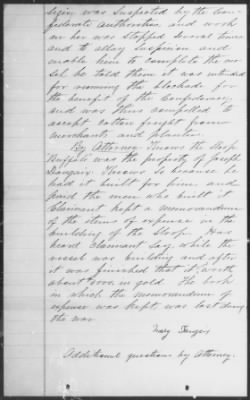 was suspected by the Con-
federate authorities, and work
on her was stopped several times
and to allay suspicion and
enable him to complete the ves-
sel he told them it was intended
for running the blockade for
the benefit of the Confederacy,
and was thus compelled to
accept cotton freight from
merchants and planters.
By Attorney. Knows the Sloop
Buffalo was the property of Joseph
Knows so because he
had it built for him and
paid the men who built it
Claimant kept a memorandum
of the items of expense in the
building of the Sloop. Has
heard claimant say, while the
vessel was building and after
it was finished that it worth
about in gold. The book
in which the memorandum of
expense was kept was lost during
the war
Mary
Additional questions by Attorney.